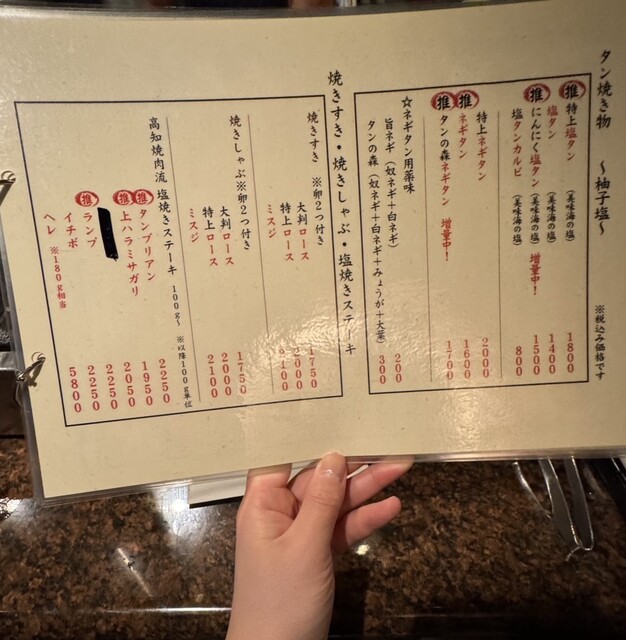 タン焼き物 〜柚子塩〜
※税込み価格です
推 特上塩タン (美味海の塩) 1800
塩タン (美味海の塩) 1400
推 にんにく塩タン (美味海の塩) 増量中! 1500
塩タンカルビ (美味海の塩) 800
特上ネギタン 2000
推 ネギタン 1600
推 タンの森ネギタン 増量中! 1700
☆ネギタン用薬味
旨ネギ(奴ネギ+白ネギ) 200
タンの森(奴ネギ+白ネギ+みょうが+大葉) 300
焼きすき・焼きしゃぶ・塩焼きステーキ
焼きすき ※卵2つ付き
大判ロース 1750
特上ロース 2000
ミスジ 2100
焼きしゃぶ※卵2つ付き
大判ロース 1750
特上ロース 2000
ミスジ 2100
高知焼肉流 塩焼きステーキ 100g〜 ※以降100g単位
推 タンブリアン 2250
推 上ハラミサガリ 1950
2050
推 ランプ 2250
イチボ 2250
ヘレ ※180g相当 5800